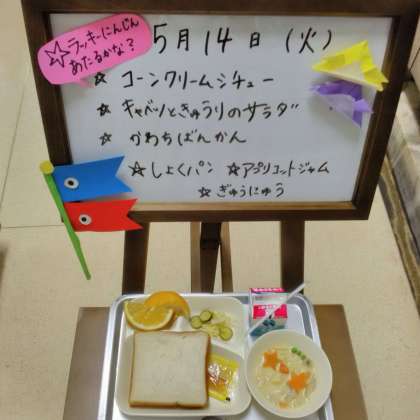 ☆ラッキーにんじん
あたるかな?
5月14日(火)
☆ コーンクリームシチュー
☆ キャベツときゅうりのサラダ
☆ かわちばんかん
☆しょくパン ☆アプリコットジャム
☆ぎゅうにゅう